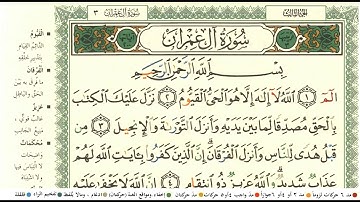 سُورَةُ آلِ عِمْرَانَ
٣
سُورَةُ آلِ عِمْرَانَ
بِسْمِ اللَّهِ الرَّحْمَٰنِ الرَّحِيمِ
الٓمٓ ١ ٱللَّهُ لَآ إِلَٰهَ إِلَّا هُوَ ٱلْحَىُّ ٱلْقَيُّومُ ٢ نَزَّلَ عَلَيْكَ ٱلْكِتَٰبَ
بِٱلْحَقِّ مُصَدِّقًا لِّمَا بَيْنَ يَدَيْهِ وَأَنزَلَ ٱلتَّوْرَىٰةَ وَٱلْإِنجِيلَ ٣ مِن
قَبْلُ هُدًى لِّلنَّاسِ وَأَنزَلَ ٱلْفُرْقَانَ إِنَّ ٱلَّذِينَ كَفَرُوا۟ بِـَٔايَٰتِ ٱللَّهِ لَهُمْ
عَذَابٌ شَدِيدٌ وَٱللَّهُ عَزِيزٌ ذُو ٱنتِقَامٍ ٤ إِنَّ ٱللَّهَ لَا يَخْفَىٰ عَلَيْهِ
القَيُّومُ
الفُرْقَانَ
عَزِيزٌ
مُحْكَمَاتٌ